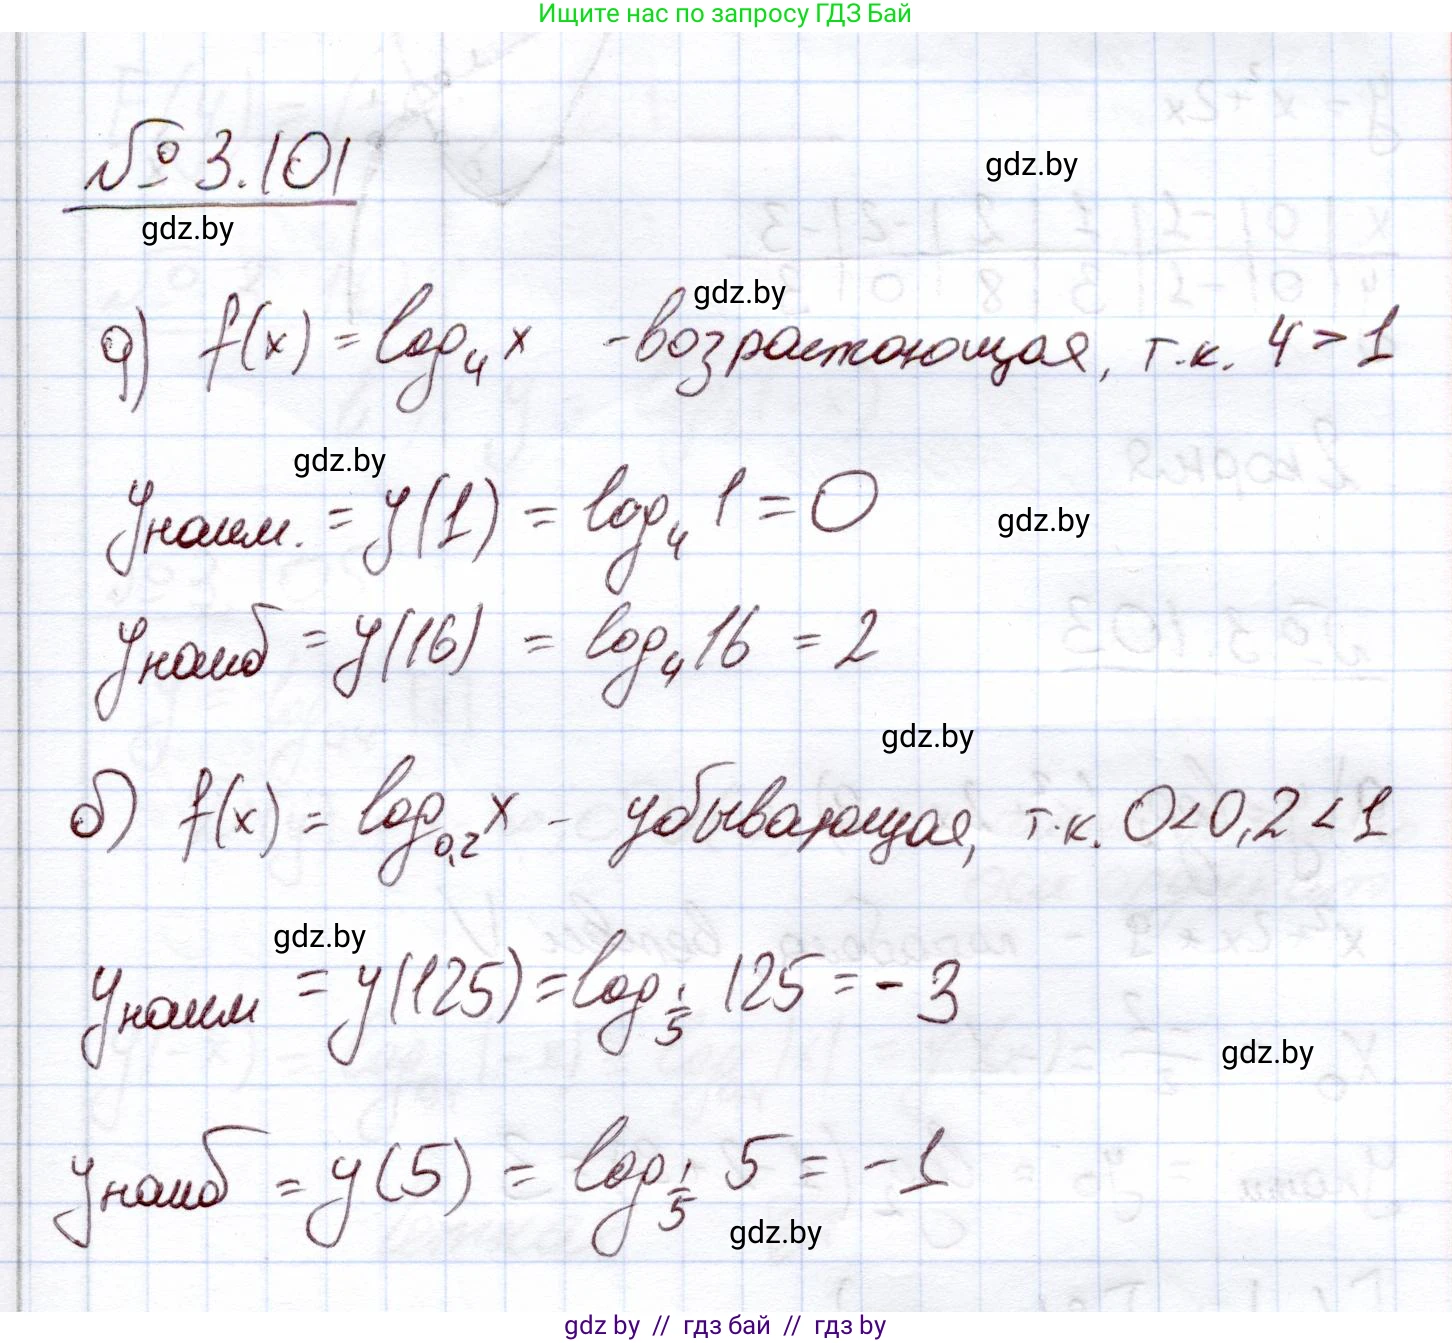 Ищите нас по запросу ГДЗ Бай
№ 3.101
gdz.by
gdz.by
gdz.by
а) f(x) = log₄ x - возрастающая, т.к. 4 > 1
gdz.by
yнаим. = y(1) = log₄ 1 = 0
gdz.by
yнаиб = y(16) = log₄ 16 = 2
gdz.by
б) f(x) = log₀,₂ x - убывающая, т.к. 0<0,2<1
gdz.by
yнаим = y(125) = log 1/5 125 = -3
gdz.by
yнаиб = y(5) = log 1/5 5 = -1
gdz.by
gdz by // гдз бай // гдз by